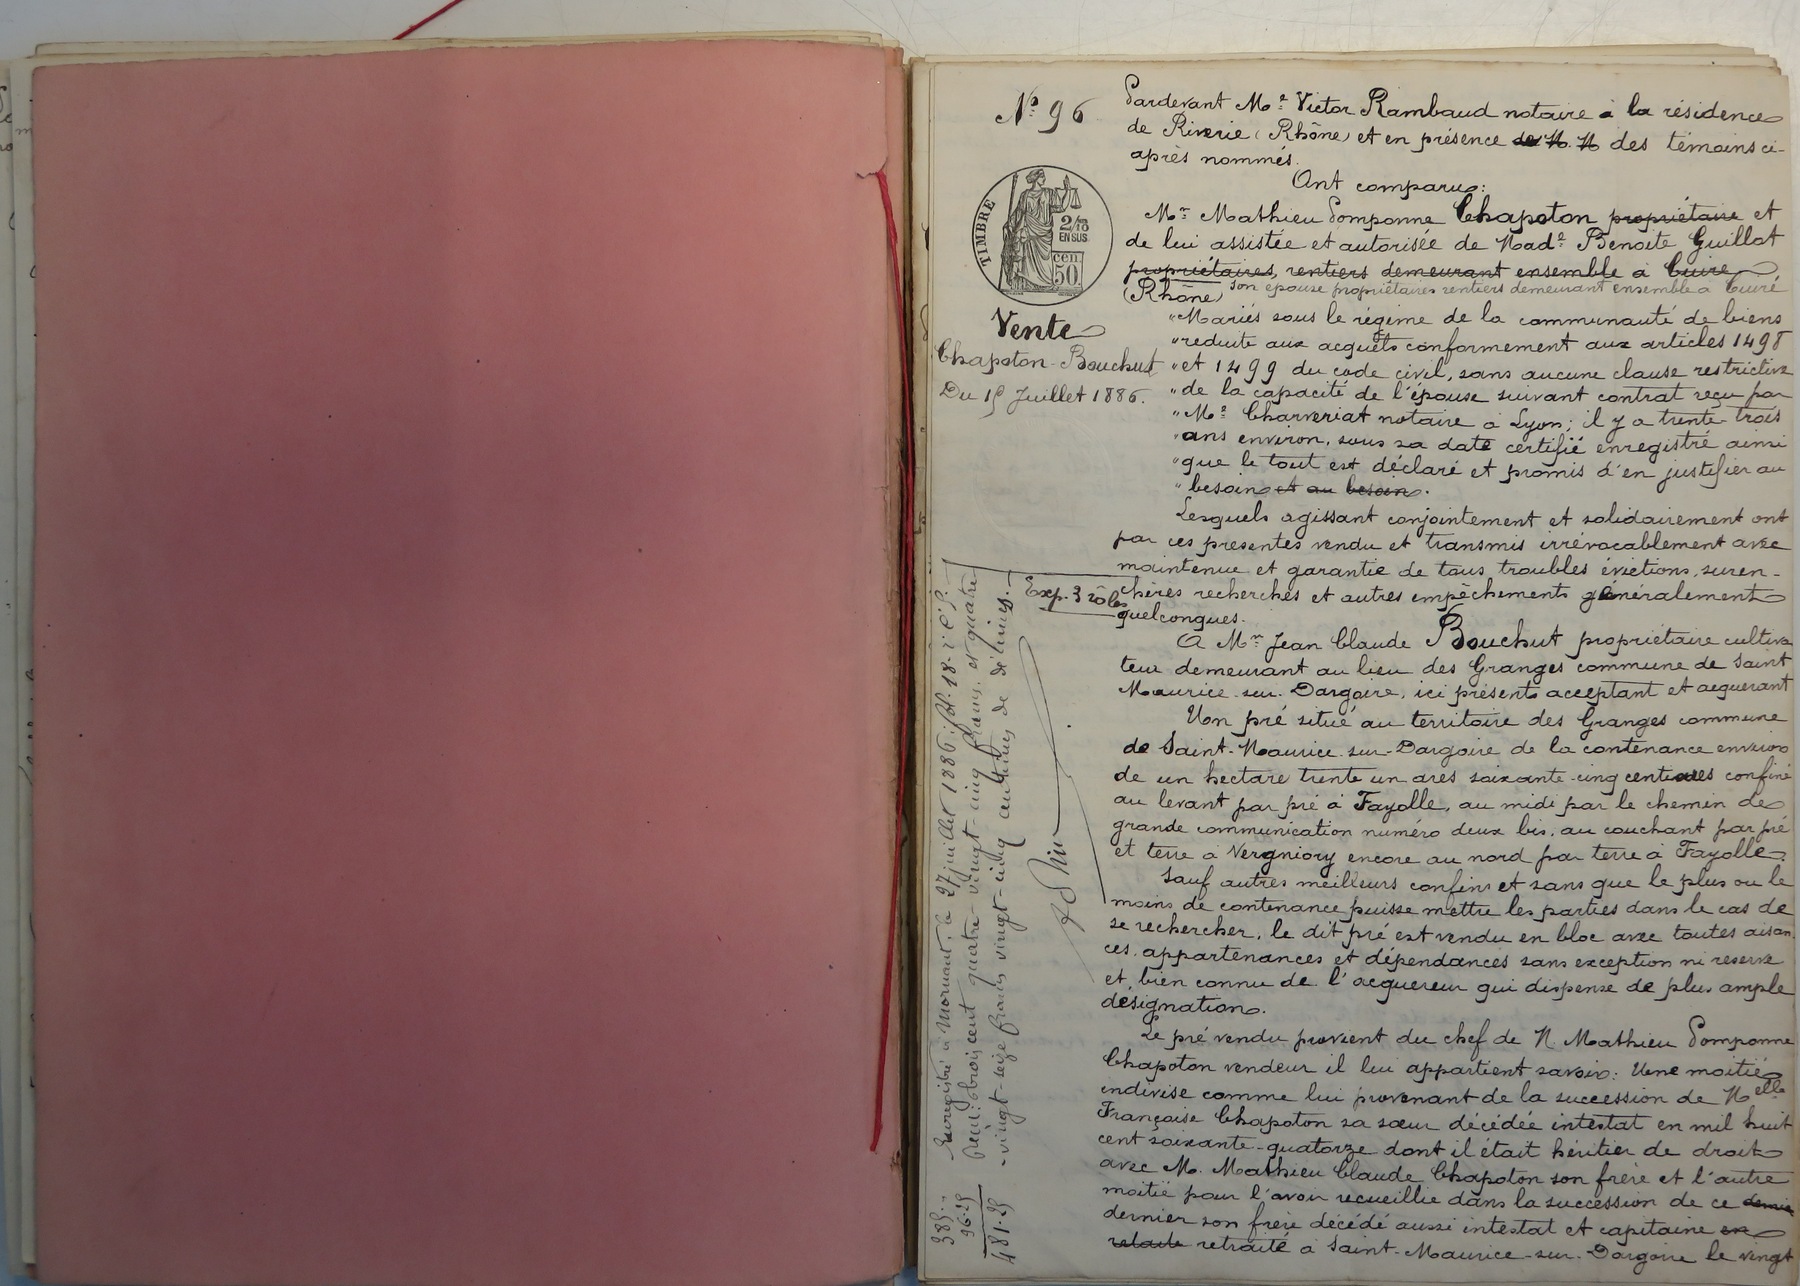 Nº 96
TIMBRE
2/10
EN SUS
cen.
50
Vente
Chapoton-Bouchut
Du 15 Juillet 1886.
Exp. 3 rôles
Pardevant Me Victor Rambaud notaire à la résidence
de Riverie (Rhône) et en présence de M. M des témoins ci-
après nommés.
Ont comparu:
Mr Mathieu Pomponne Chapoton propriétaire et
de lui assistée et autorisée de Made Benoite Guillot
propriétaires, rentiers demeurant ensemble à Cuire
(Rhône) son épouse propriétaires rentiers demeurant ensemble à Cuire
"Mariés sous le régime de la communauté de biens
"reduite aux acquêts conformement aux articles 1498
"et 1499 du code civil, sans aucune clause restrictive
"de la capacité de l'épouse suivant contrat reçu par
"Me Charveriat notaire à Lyon; il y a trente-trois
"ans environ, sous sa date certifié enregistré ainsi
"que le tout est déclaré et promis d'en justifier au
"besoin et au besoin.
Lesquels agissant conjointement et solidairement ont
par ces présentes vendu et transmis irrévocablement avec
maintenue et garantie de tous troubles évictions, suren-
chères recherches et autres empêchements généralement
quelconques.
A Mr Jean Claude Bouchut propriétaire cultiva
teur demeurant au lieu des Granges commune de Saint
Maurice-sur-Dargoire, ici présent acceptant et acquerant
Un pré situé au territoire des Granges commune
de Saint-Maurice-sur-Dargoire de la contenance environ
de un hectare trente un ares soixante-cinq centiares confiné
au levant par pré à Fayolle, au midi par le chemin de
grande communication numéro deux bis, au couchant par pré
et terre à Vergniory encore au nord par terre à Fayolle.
Sauf autres meilleurs confins et sans que le plus ou le
moins de contenance puisse mettre les parties dans le cas de
se rechercher, le dit pré est vendu en bloc avec toutes aisan
ces, appartenances et dépendances sans exception ni reserve
et, bien connu de l'acquereur qui dispense de plus ample
désignation.
Le pré vendu provient du chef de M. Mathieu Pomponne
Chapoton vendeur il lui appartient savoir: Une moitié
indivise comme lui provenant de la succession de Melle
Françoise Chapoton sa sœur décédée intestat en mil huit
cent soixante-quatorze dont il était héritier de droit
avec M. Mathieu Claude Chapoton son frère et l'autre
moitié pour l'avoir recueillie dans la succession de ce dernier
dernier son frère décédé aussi intestat et capitaine en
retraite retraité à Saint-Maurice-sur-Dargoire le vingt
Enregistré à Mornant, le 27 juillet 1886; fol. 18
Reçu: trois cent quatre-vingt-cinq francs, et quatre
-vingt-seize francs vingt-cinq centimes de décimes.
385..
96.25
481.25